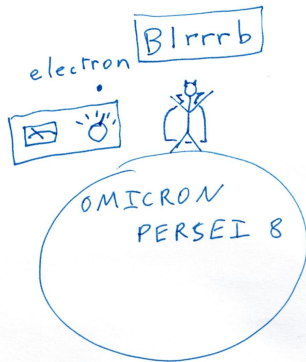 Blrrrb
electron
OMICRON
PERSEI 8